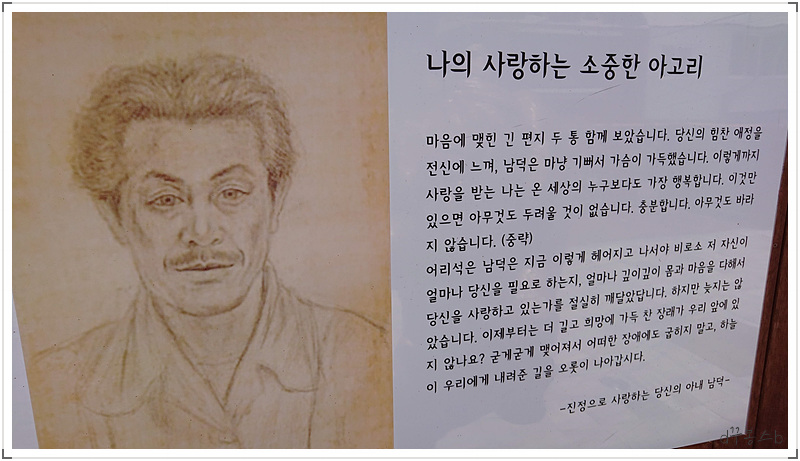 나의 사랑하는 소중한 아고리
마음에 맺힌 긴 편지 두 통 함께 보았습니다. 당신의 힘찬 애정을
전신에 느껴, 남덕은 마냥 기뻐서 가슴이 가득했습니다. 이렇게까지
사랑을 받는 나는 온 세상의 누구보다도 가장 행복합니다. 이것만
있으면 아무것도 두려울 것이 없습니다. 충분합니다. 아무것도 바라
지 않습니다. (중략)
어리석은 남덕은 지금 이렇게 헤어지고 나서야 비로소 저 자신이
얼마나 당신을 필요로 하는지, 얼마나 깊이깊이 몸과 마음을 다해서
당신을 사랑하고 있는가를 절실히 깨달았답니다. 하지만 늦지는 않
았습니다. 이제부터는 더 길고 희망에 가득 찬 장래가 우리 앞에 있
지 않나요? 굳게굳게 맺어져서 어떠한 장애에도 굽히지 말고, 하늘
이 우리에게 내려준 길을 오롯이 나아갑시다.
-진정으로 사랑하는 당신의 아내 남덕-